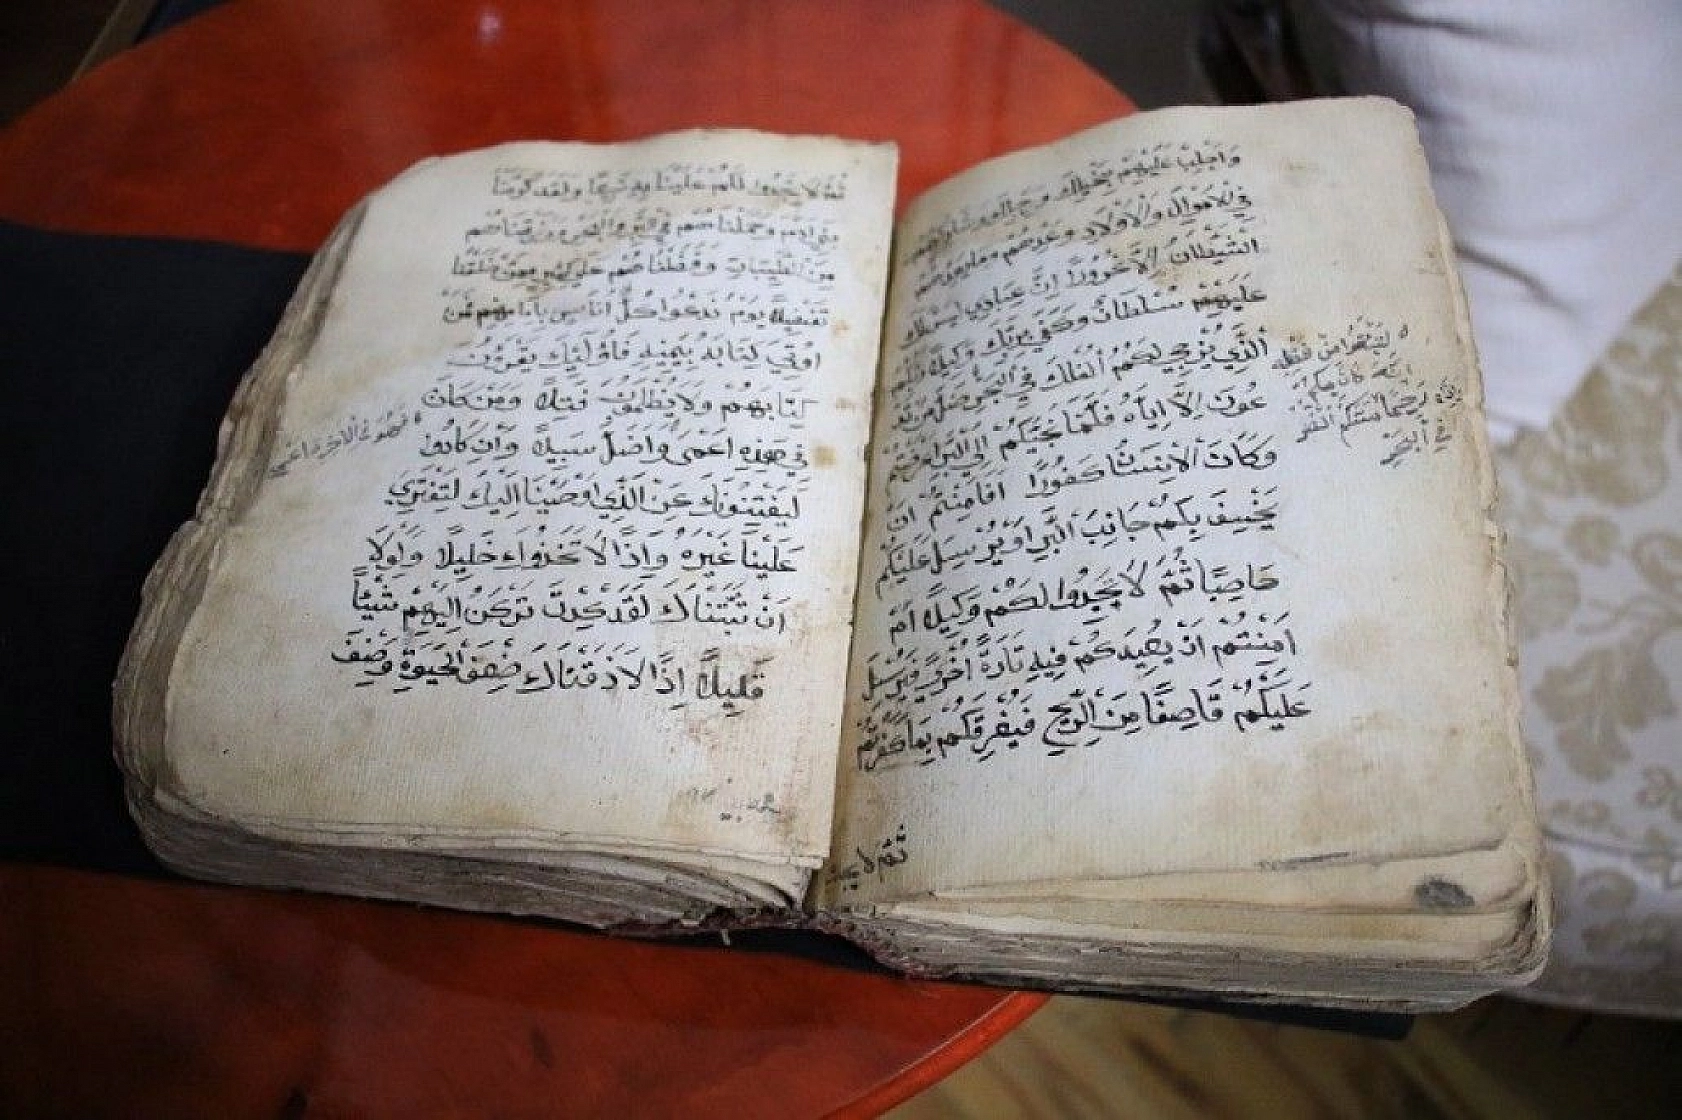 وَاجلِب عَلَيْهِمْ بِخَيْلِكَ وَرَجِلِكَ وَشَارِكْهُمْ
فِي الْاَمْوَالِ وَالْاَوْلَادِ وَعِدْهُمْ وَمَا يَعِدُهُمْ
الشَّيْطَانُ اِلَّا غُرُورًا اِنَّ عِبَادِي لَيْسَ لَكَ
عَلَيْهِمْ سُلْطَانٌ وَكَفَى بِرَبِّكَ وَكِيلًا رَبُّكُمُ
الَّذِي يُزْجِي لَكُمُ الْفُلْكَ فِي الْبَحْرِ ضَلَّ مَنْ تَدْ
عُونَ اِلَّا اِيَّاهُ فَلَمَّا نَجَّيكُمْ اِلَى الْبَرِّ اَعْرَضْتُمْ
وَكَانَ الْاِنْسَانُ كَفُورًا اَفَاَمِنْتُمْ اَنْ
يَخْسِفَ بِكُمْ جَانِبَ الْبَرِّ اَوْ يُرْسِلَ عَلَيْكُمْ
حَاصِبًا ثُمَّ لَا تَجِدُوا لَكُمْ وَكِيلًا اَمْ
اَمِنْتُمْ اَنْ يُعِيدَكُمْ فِيهِ تَارَةً اُخْرَى فَيُرْسِلَ
عَلَيْكُمْ قَاصِفًا مِنَ الرِّيحِ فَيُغْرِقَكُمْ بِمَا كَفَرْتُمْ
لِتَبْتَغُوا مِنْ فَضْلِهِ
اِنَّهُ كَانَ بِكُمْ
رَحِيمًا وَاِذَا مَسَّكُمُ الضُّرُّ
فِي الْبَحْرِ
ثُمَّ لَا
ثُمَّ لَا تَجِدُوا لَكُمْ عَلَيْنَا بِهِ تَبِيعًا وَلَقَدْ كَرَّمْنَا
بَنِي اٰدَمَ وَحَمَلْنَاهُمْ فِي الْبَرِّ وَالْبَحْرِ وَرَزَقْنَاهُمْ
مِنَ الطَّيِّبَاتِ وَفَضَّلْنَاهُمْ عَلَى كَثِيرٍ مِمَّنْ خَلَقْنَا
تَفْضِيلًا يَوْمَ نَدْعُوا كُلَّ اُنَاسٍ بِاِمَامِهِمْ فَمَنْ
اُوتِيَ كِتَابَهُ بِيَمِينِهِ فَاُولٰئِكَ يَقْرَؤُنَ
كِتَابَهُمْ وَلَا يُظْلَمُونَ فَتِيلًا وَمَنْ كَانَ
فِي هٰذِهِ اَعْمَى وَاَضَلُّ سَبِيلًا وَاِنْ كَادُوا
فَهُوَ فِي الْاٰخِرَةِ اَعْمَى
لَيَفْتِنُونَكَ عَنِ الَّذِي اَوْحَيْنَا اِلَيْكَ لِتَفْتَرِيَ
عَلَيْنَا غَيْرَهُ وَاِذًا لَاتَّخَذُوكَ خَلِيلًا وَلَوْلَا
اَنْ ثَبَّتْنَاكَ لَقَدْ كِدْتَ تَرْكَنُ اِلَيْهِمْ شَيْئًا
قَلِيلًا اِذًا لَاَذَقْنَاكَ ضِعْفَ الْحَيٰوةِ وَضِعْفَ